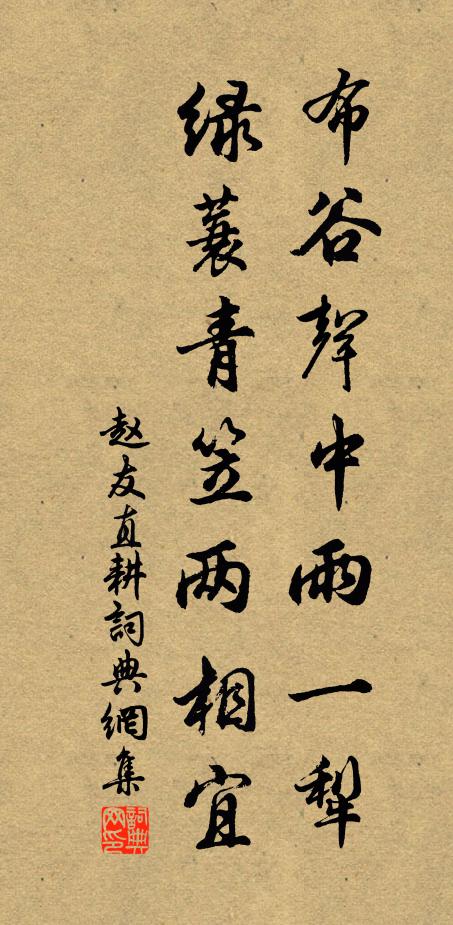 布谷聲中雨一犁
绿蓑青笠两相宜
赵友直耕詞典網集
詞典网印